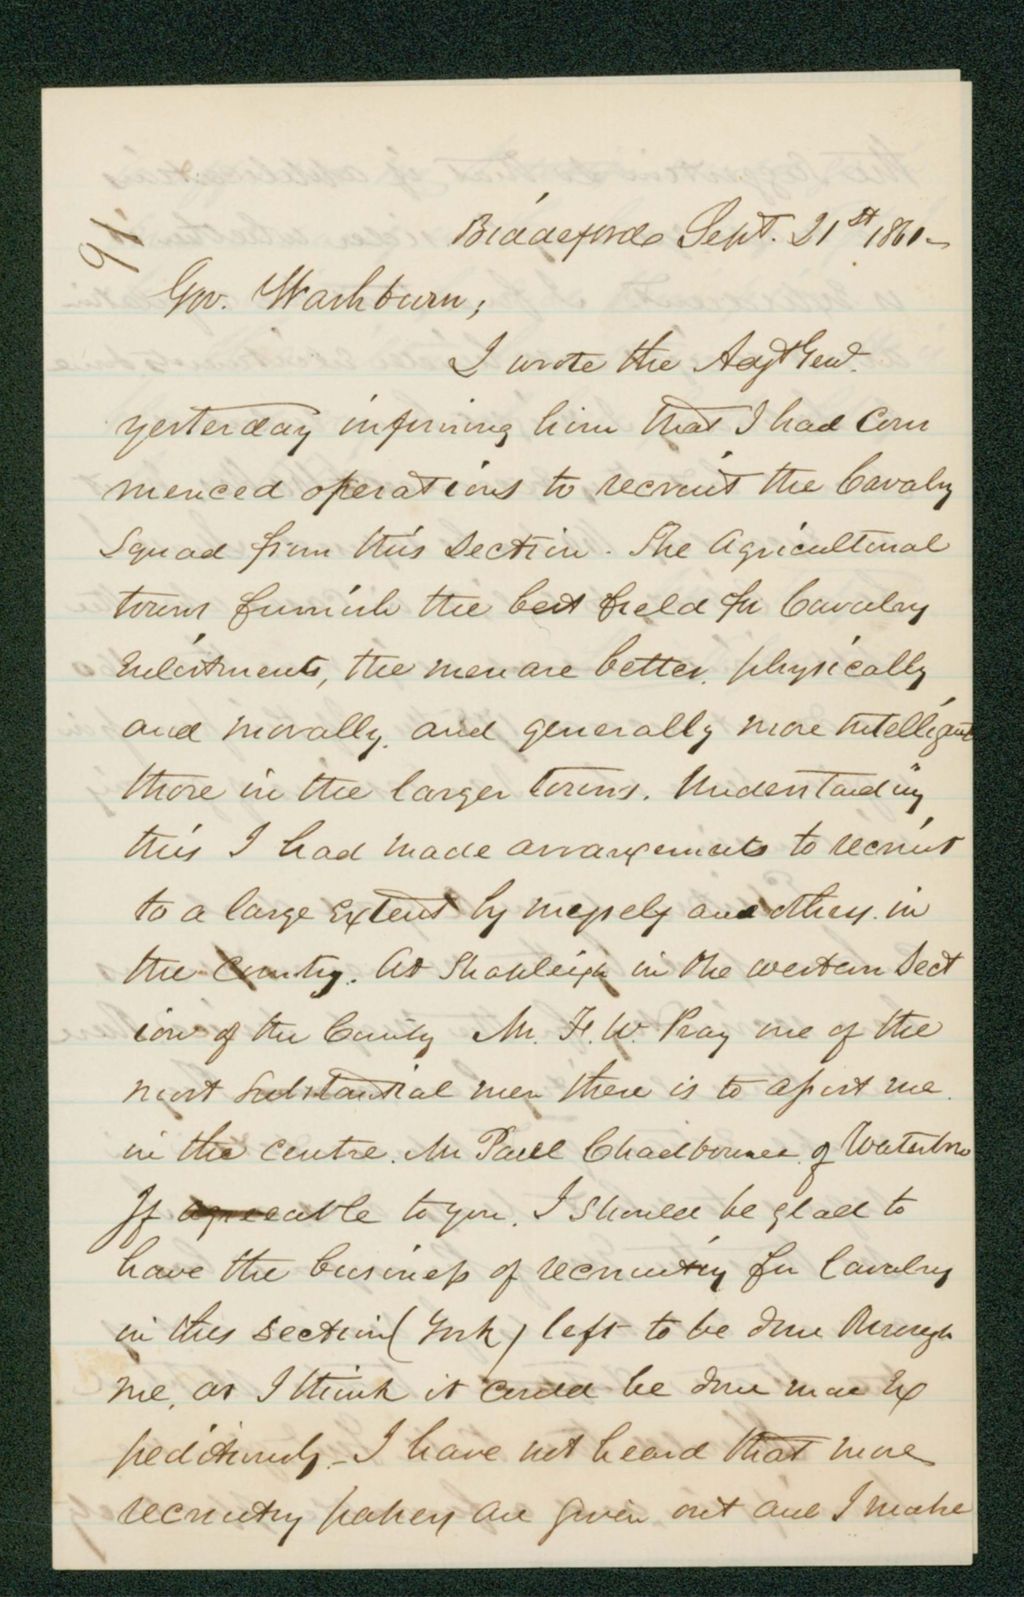 91
Biddeford Sept. 21st 1861-
Gov. Washburn;
I wrote the Adjt Genl.
yesterday informing him that I had com
menced operations to recruit the Cavalry
Squad from this Section. The Agricultural
towns furnish the best field for Cavalry
Enlistments, the men are better, physically
and morally, and generally more intelligent
those in the larger towns. Understanding
this I had made arrangements to recruit
to a large Extent by myself and others in
the County. At Shapleigh in the western Sect
ion of the County Mr. F. W. Pray one of the
most Substantial men there is to assist me.
in the centre. Mr Paul Chadbourne of Waterboro
If agreeable to you, I should be glad to
have the business of recruiting for Cavalry
in this Section (York) left to be done through
me, as I think it could be done more Ex
peditiously - I have not heard that more
recruiting papers are given out and I make